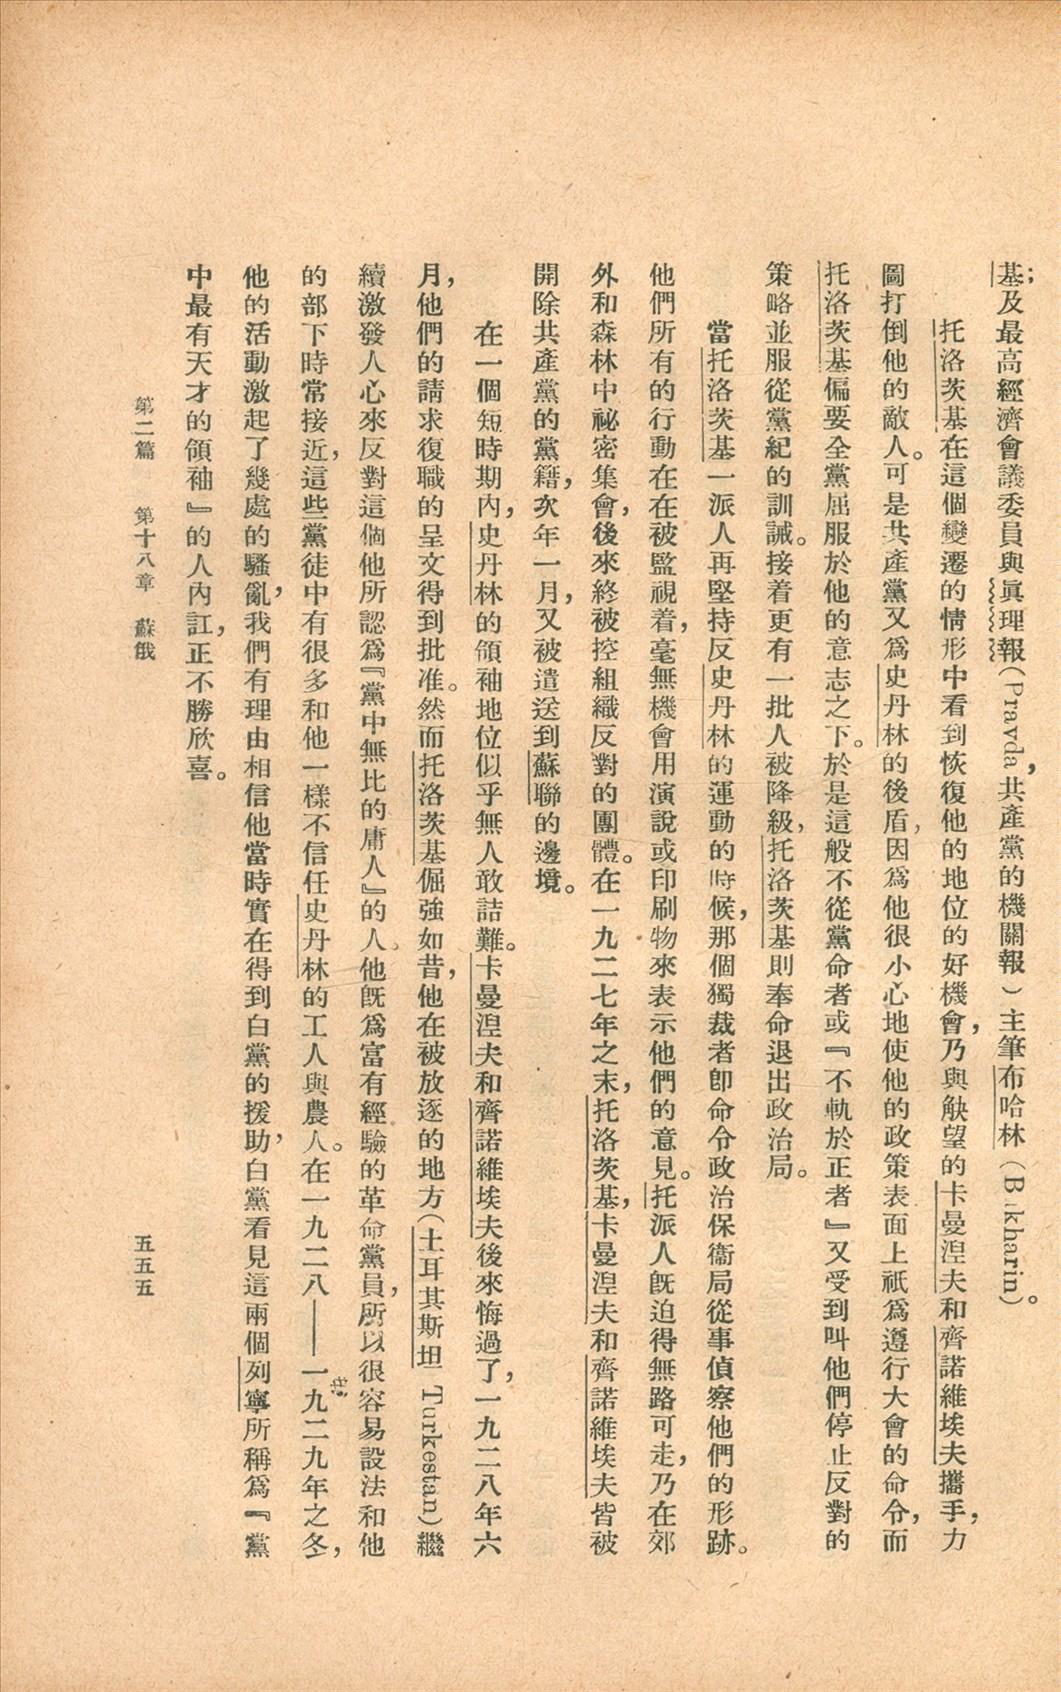 基；及最高經濟會議委員與眞理報（Pravda，共產黨的機關報）主筆布哈林（Bukharin）。
托洛茨基在這個變遷的情形中看到恢復他的地位的好機會，乃與觖望的卡曼湼夫和齊諾維埃夫攜手，力
圖打倒他的敵人。可是共產黨又爲史丹林的後盾，因爲他很小心地使他的政策表面上祇爲遵行大會的命令，而
托洛茨基偏要全黨屈服於他的意志之下。於是這般不從黨命者或『不軌於正者』又受到叫他們停止反對的
策略並服從黨紀的訓誡。接着更有一批人被降級，托洛茨基則奉命退出政治局。
當托洛茨基一派人再堅持反史丹林的運動的時候，那個獨裁者卽命令政治保衞局從事偵察他們的形跡。
他們所有的行動在在被監視着，毫無機會用演說或印刷物來表示他們的意見。托派人旣迫得無路可走，乃在郊
外和森林中祕密集會，後來終被控組織反對的團體。在一九二七年之末，托洛茨基，卡曼湼夫和齊諾維埃夫皆被
開除共產黨的黨籍，次年一月，又被遣送到蘇聯的邊境。
在一個短時期內，史丹林的領袖地位似乎無人敢詰難。卡曼湼夫和齊諾維埃夫後來悔過了，一九二八年六
月，他們的請求復職的呈文得到批准。然而托洛茨基倔強如昔，他在被放逐的地方（土耳其斯坦 Turkestan）繼
續激發人心來反對這個他所認爲『黨中無比的庸人』的人。他旣爲富有經驗的革命黨員，所以很容易設法和他
的部下時常接近，這些黨徒中有很多和他一樣不信任史丹林的工人與農人。在一九二八——一九二九年之冬，
他的活動激起了幾處的騷亂，我們有理由相信他當時實在得到白黨的援助，白黨看見這兩個列寧所稱爲『黨
中最有天才的領袖』的人內訌，正不勝欣喜。
第二篇　第十八章　蘇俄
五五五